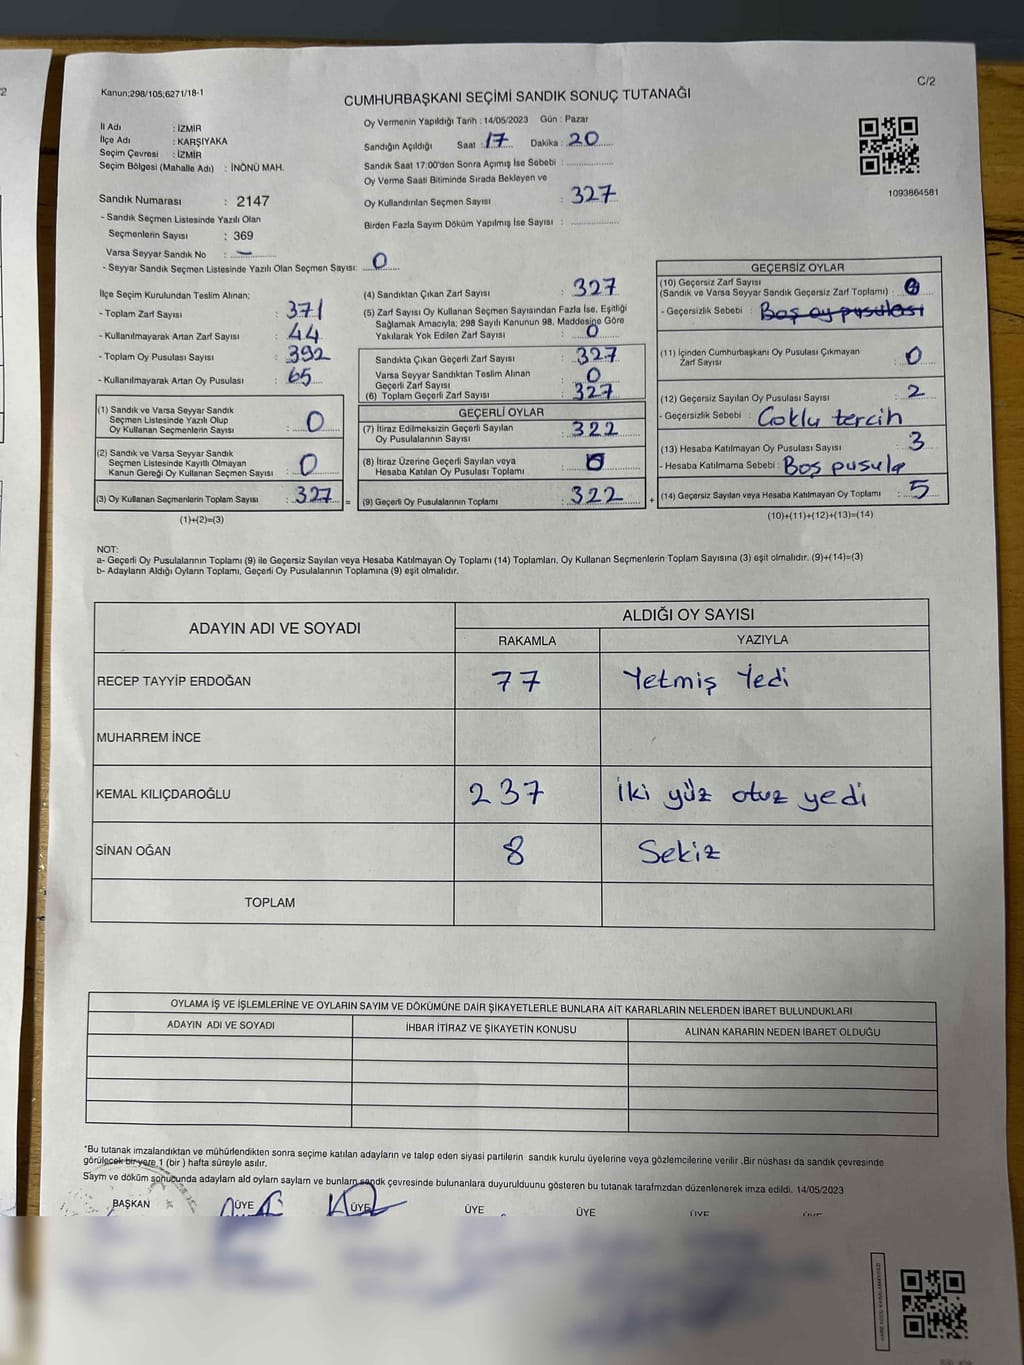 C/2
Kanun;298/105;6271/18-1
CUMHURBAŞKANI SEÇİMİ SANDIK SONUÇ TUTANAĞI
İl Adı : İZMİR
İlçe Adı : KARŞIYAKA
Seçim Çevresi : İZMİR
Seçim Bölgesi (Mahalle Adı) : İNÖNÜ MAH.
Oy Vermenin Yapıldığı Tarih : 14/05/2023 Gün : Pazar
Sandığın Açıldığı Saat : 17 Dakika : 20
Sandık Saat 17:00'den Sonra Açımış İse Sebebi :
Oy Verme Saati Bitiminde Sırada Bekleyen ve
Oy Kullandırılan Seçmen Sayısı : 327
Birden Fazla Sayım Döküm Yapılmış İse Sayısı :
1093864581
Sandık Numarası : 2147
- Sandık Seçmen Listesinde Yazılı Olan
Seçmenlerin Sayısı : 369
Varsa Seyyar Sandık No : –
- Seyyar Sandık Seçmen Listesinde Yazılı Olan Seçmen Sayısı: 0
İlçe Seçim Kurulundan Teslim Alınan;
- Toplam Zarf Sayısı : 371
- Kullanılmayarak Artan Zarf Sayısı : 44
- Toplam Oy Pusulası Sayısı : 392
- Kullanılmayarak Artan Oy Pusulası : 65
(1) Sandık ve Varsa Seyyar Sandık
Seçmen Listesinde Yazılı Olup
Oy Kullanan Seçmenlerin Sayısı : 0
(2) Sandık ve Varsa Seyyar Sandık
Seçmen Listesinde Kayıtlı Olmayan
Kanun Gereği Oy Kullanan Seçmen Sayısı : 0
(3) Oy Kullanan Seçmenlerin Toplam Sayısı : 327 =
(1)+(2)=(3)
(4) Sandıktan Çıkan Zarf Sayısı : 327
(5) Zarf Sayısı Oy Kullanan Seçmen Sayısından Fazla İse, Eşitliği
Sağlamak Amacıyla; 298 Sayılı Kanunun 98. Maddesine Göre
Yakılarak Yok Edilen Zarf Sayısı : 0
Sandıkta Çıkan Geçerli Zarf Sayısı : 327
Varsa Seyyar Sandıktan Teslim Alınan
Geçerli Zarf Sayısı : 0
(6) Toplam Geçerli Zarf Sayısı : 327
GEÇERLİ OYLAR
(7) İtiraz Edilmeksizin Geçerli Sayılan
Oy Pusulalarının Sayısı : 322
(8) İtiraz Üzerine Geçerli Sayılan veya
Hesaba Katılan Oy Pusulası Toplamı : 0
(9) Geçerli Oy Pusulalarının Toplamı : 322 +
GEÇERSİZ OYLAR
(10) Geçersiz Zarf Sayısı
(Sandık ve Varsa Seyyar Sandık Geçersiz Zarf Toplamı) : 0
- Geçersizlik Sebebi : Boş oy pusulası
(11) İçinden Cumhurbaşkanı Oy Pusulası Çıkmayan
Zarf Sayısı : 0
(12) Geçersiz Sayılan Oy Pusulası Sayısı : 2
- Geçersizlik Sebebi : Çoklu tercih
(13) Hesaba Katılmayan Oy Pusulası Sayısı : 3
- Hesaba Katılmama Sebebi : Boş pusula
(14) Geçersiz Sayılan veya Hesaba Katılmayan Oy Toplamı : 5
(10)+(11)+(12)+(13)=(14)
NOT:
a- Geçerli Oy Pusulalarının Toplamı (9) ile Geçersiz Sayılan veya Hesaba Katılmayan Oy Toplamı (14) Toplamları, Oy Kullanan Seçmenlerin Toplam Sayısına (3) eşit olmalıdır. (9)+(14)=(3)
b- Adayların Aldığı Oyların Toplamı, Geçerli Oy Pusulalarının Toplamına (9) eşit olmalıdır.
ADAYIN ADI VE SOYADI
ALDIĞI OY SAYISI
RAKAMLA YAZIYLA
RECEP TAYYİP ERDOĞAN 77 Yetmiş Yedi
MUHARREM İNCE
KEMAL KILIÇDAROĞLU 237 İki yüz otuz yedi
SİNAN OĞAN 8 Sekiz
TOPLAM
OYLAMA İŞ VE İŞLEMLERİNE VE OYLARIN SAYIM VE DÖKÜMÜNE DAİR ŞİKAYETLERLE BUNLARA AİT KARARLARIN NELERDEN İBARET BULUNDUKLARI
ADAYIN ADI VE SOYADI İHBAR İTİRAZ VE ŞİKAYETİN KONUSU ALINAN KARARIN NEDEN İBARET OLDUĞU
*Bu tutanak imzalandıktan ve mühürlendikten sonra seçime katılan adayların ve talep eden siyasi partilerin sandık kurulu üyelerine veya gözlemcilerine verilir .Bir nüshası da sandık çevresinde
görülecek bir yere 1 (bir ) hafta süreyle asılır.
Sayım ve döküm sonucunda adayların ald oyların sayların ve bunların sandk çevresinde bulunanlara duyurulduunu gösteren bu tutanak tarafmzdan düzenlenerek imza edildi. 14/05/2023
BAŞKAN ÜYE ÜYE ÜYE ÜYE ÜYE ÜYE